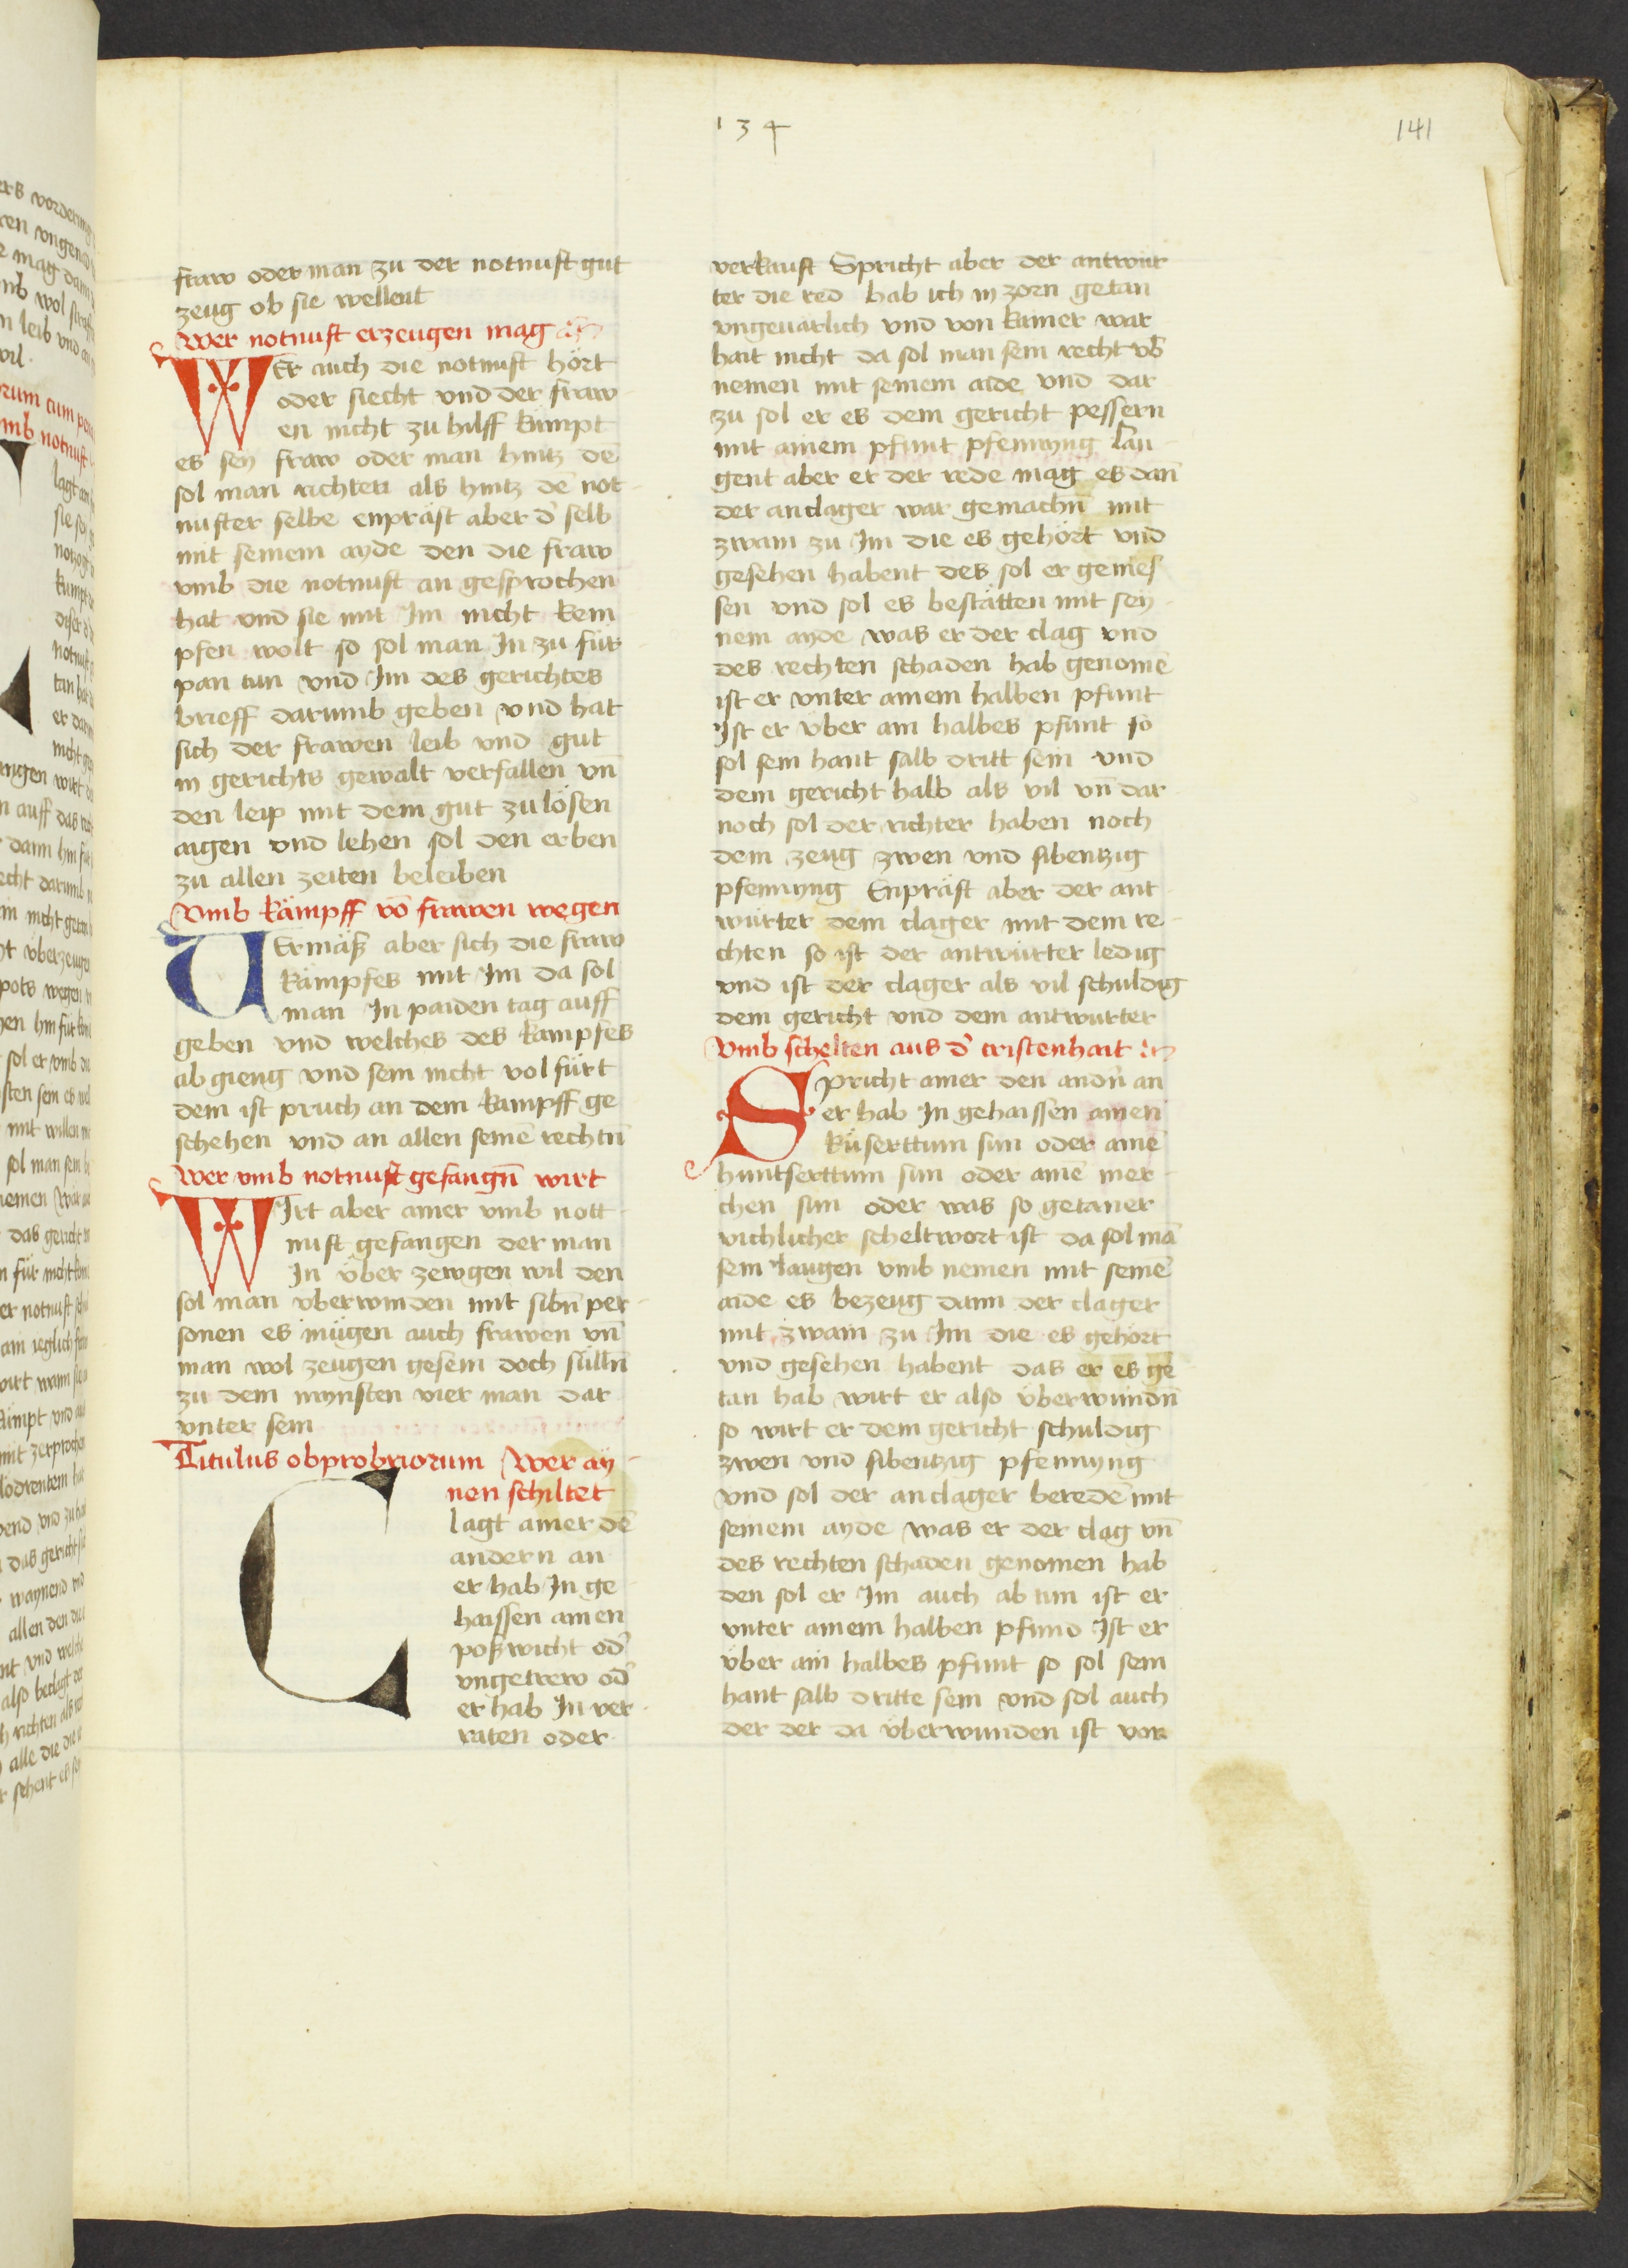 134
141
fraw oder man zu der notnuft gut
zeug ob sie wellent
Wer notnuft erzeugen mag
WEr auch die notnuft hört
oder siecht vnd der fraw
en nicht zu hilff kümpt
es sey fraw oder man hintz dē
sol man richten als hintz dē not
nufter selbe enpräst aber d' selb
mit seinem ayde den die fraw
vmb die notnuft an gesprochen
hat vnd sie mit Im nicht kem
pfen wolt so sol man In zu für
pan tun vnd Im des gerichtes
brieff darumb geben vnd hat
sich der frawen leib vnd gut
in gerichts gewalt verfallen vn̄
den leip mit dem gut zu lösen
aigen vnd lehen sol den erben
zu allen zeiten beleiben
Vmb kämpff vō frawen wegen
VErmäß aber sich die fraw
kampfes mit Im da sol
man In paiden tag auff
geben vnd welches des kampfes
ab gieng vnd sein nicht vol fürt
dem ist pruch an dem kampff ge
schehen vnd an allen seinē rechtn̄
Wer vmb notnuft gefangn̄ wirt
WIrt aber ainer vmb nott
nuft gefangen der man
In über zewgen wil den
sol man vberwinden mit sibn̄ per
sonen es mügen auch frawen vn̄
man wol zeugen gesein doch sülln̄
zu dem mynsten vier man dar
vnter sein
Titulus obprobriorum Wer ay
nen schiltet
Clagt ainer dē
andern an
er hab In ge
haissen ainen
poßwicht od'
vngetrew od'
er hab In ver
raten oder
verkauft Spricht aber der antwür
ter die red hab ich in zorn getan
vngeuarlich vnd von kainer war
hait nicht da sol man sein recht vb̄
nemen mit seinem aide vnd dar
zu sol er es dem gericht pessern
mit ainem pfunt pfennyng lau
gent aber er der rede mag es dan̄
der anclager war gemachn̄ mit
zwain zu Im die es gehört vnd
gesehen habent des sol er genies
sen vnd sol es bestätten mit sey
nem ayde was er der clag vnd
des rechten schaden hab genomē
ist er vnter ainem halben pfunt
Ist er vber ain halbes pfunt so
sol sein hant salb dritt sein vnd
dem gericht halb als vil vn̄ dar
noch sol der richter haben noch
dem zeug zwen vnd sibentzig
pfennyng Enpräst aber der ant
würter dem clager mit dem re
chten so ist der antwürter ledig
vnd ist der clager als vil schuldig
dem gericht vnd dem antwurter
Vmb schelten aus d' cristenhait
SPricht ainer den andn̄ an
er hab In gehaissen ainen
küserttum sun oder ainē
huntserttum sun oder ainē mer
chen sun oder was so getaner
vichlicher scheltwort ist da sol mā
sein laugen vmb nemen mit seinē
aide es bezeug dann der clager
mit zwain zu Im die es gehört
vnd gesehen habent das er es ge
tan hab wirt er also überwundn̄
so wirt er dem gericht schuldig
zwen vnd sibentzig pfennyng
vnd sol der anclager beredē mit
seinem ayde was er der clag vn̄
des rechten schaden genomen hab
den sol er Im auch ab tun ist er
vnter ainem halben pfund Ist er
über ain halbes pfunt so sol sein
hant salb dritte sein vnd sol auch
der der da überwunden ist vor